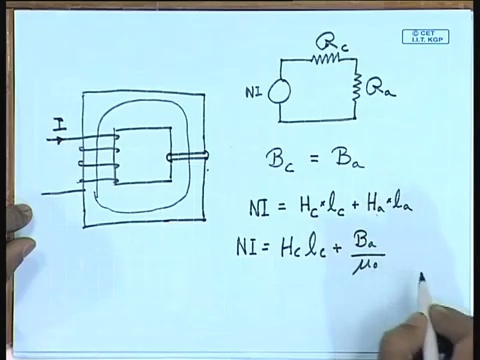 © CET
I.I.T. KGP
R_c
I
NI
R_a
B_c = B_a
NI = H_c * l_c + H_a * l_a
NI = H_c l_c + B_a / μ_0